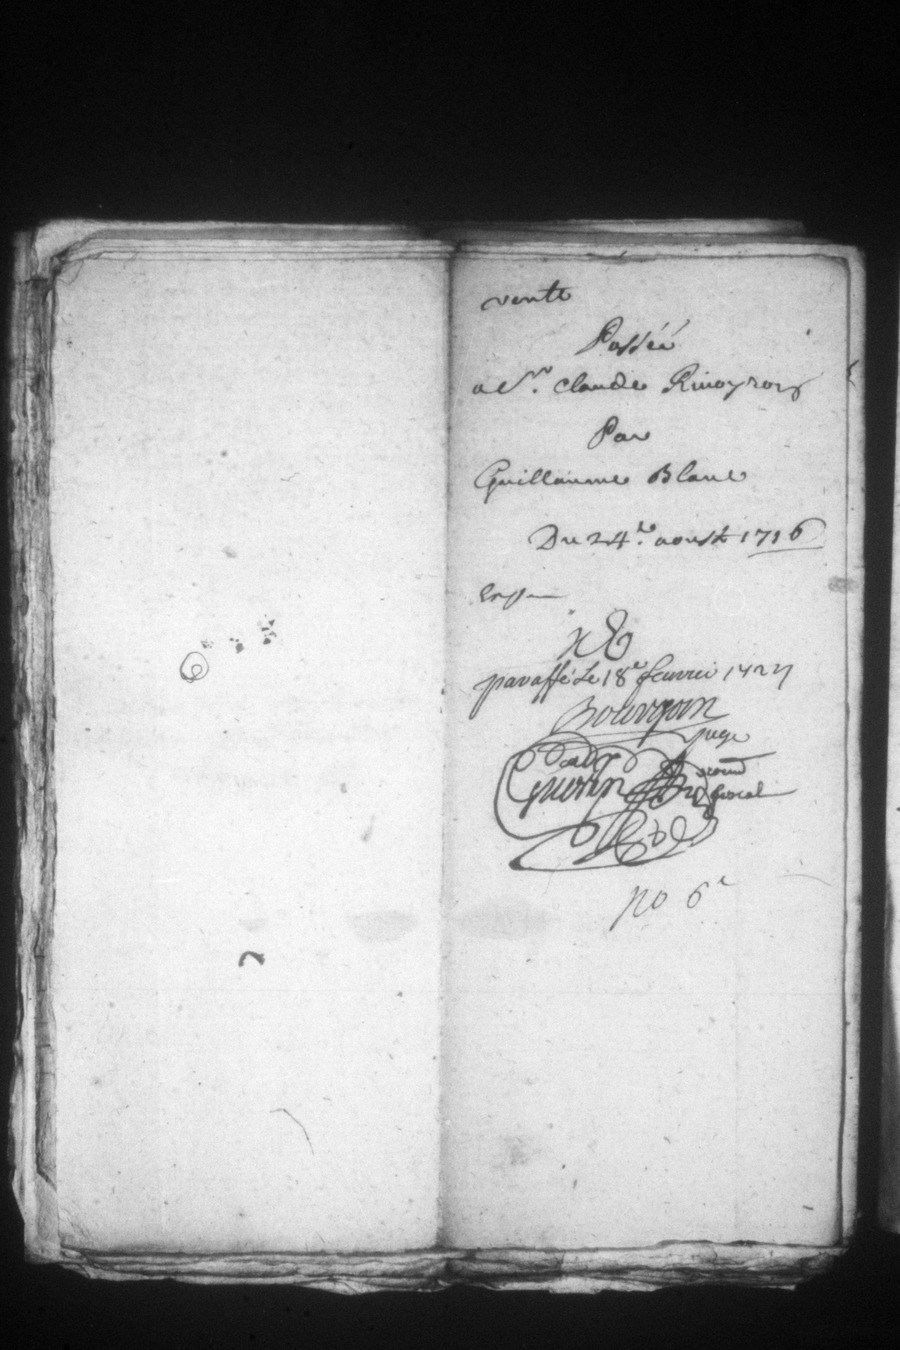 vente
Passéé
a Sr. Claude Rivoyron
Par
Guillaume Blanc
Du 24e. aoust 1716
Exp
paraffé Le 18e feuvrié 1727
Bourgoin
juge
Guerin
fiscal
no 6e